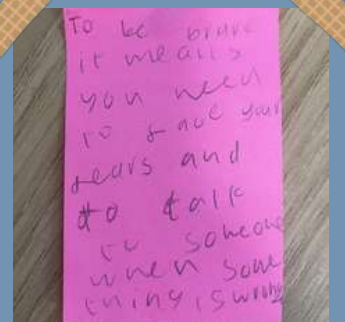 To be brave
it means
you need
to face your
fears and
to talk
to someone
when some
thing is wrong